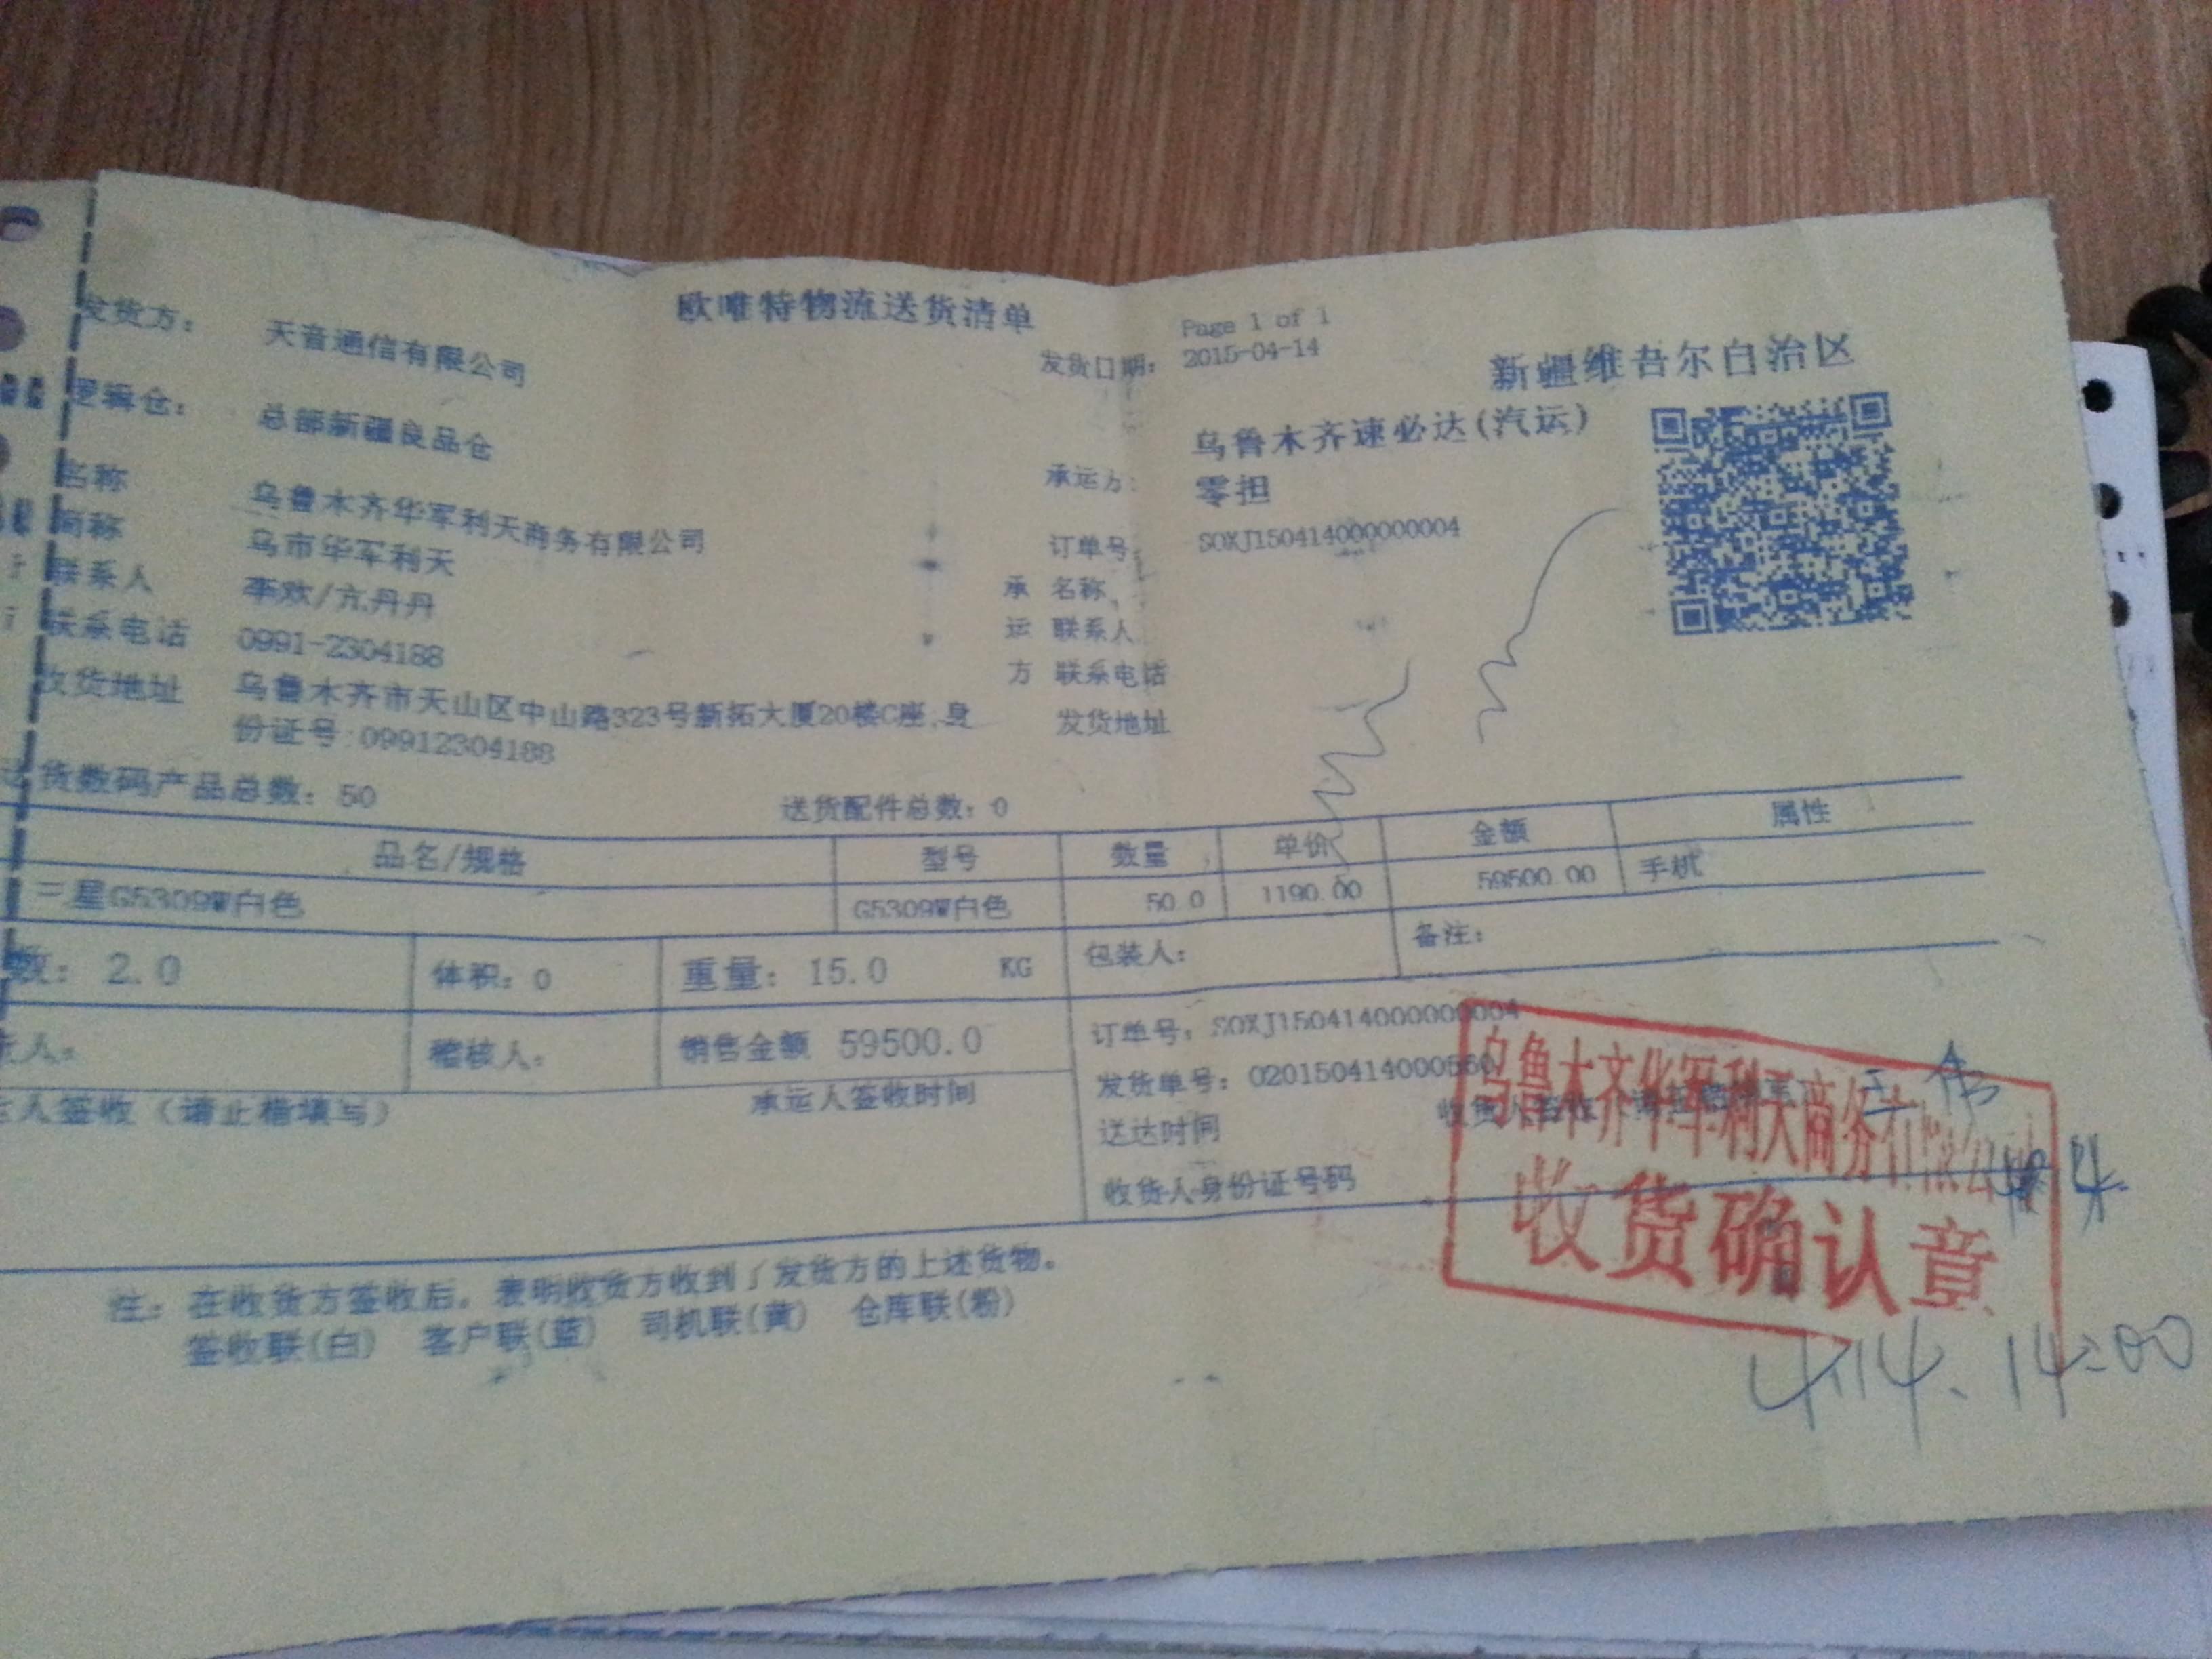 欧唯特物流送货清单
Page 1 of 1
发货方： 天音通信有限公司
发货日期： 2015-04-14
新疆维吾尔自治区
逻辑仓： 总部新疆良品仓
承运方： 乌鲁木齐速必达(汽运)
零担
名称 乌鲁木齐华军利天商务有限公司
订单号： SOXJ150414000000004
简称 乌市华军利天
承 名称
联系人 李欢/亢丹丹
运 联系人
联系电话 0991-2304188
方 联系电话
收货地址 乌鲁木齐市天山区中山路323号新拓大厦20楼C座,身
份证号:09912304188
发货地址
送货数码产品总数：50 送货配件总数：0
品名/规格 型号 数量 单价 金额 属性
三星G5309W白色 G5309W白色 50.0 1190.00 59500.00 手机
数：2.0 体积：0 重量：15.0 KG 包装人： 备注：
人： 稽核人： 销售金额 59500.0
订单号：SOXJ150414000000004
发货单号：0201504140005
运人签收（请正楷填写） 承运人签收时间
送达时间 收货人
收货人身份证号码
乌鲁木齐华军利天商务有限公司
收货确认章
4.14. 14:00
注：在收货方签收后，表明收货方收到了发货方的上述货物。
签收联(白) 客户联(蓝) 司机联(黄) 仓库联(粉)